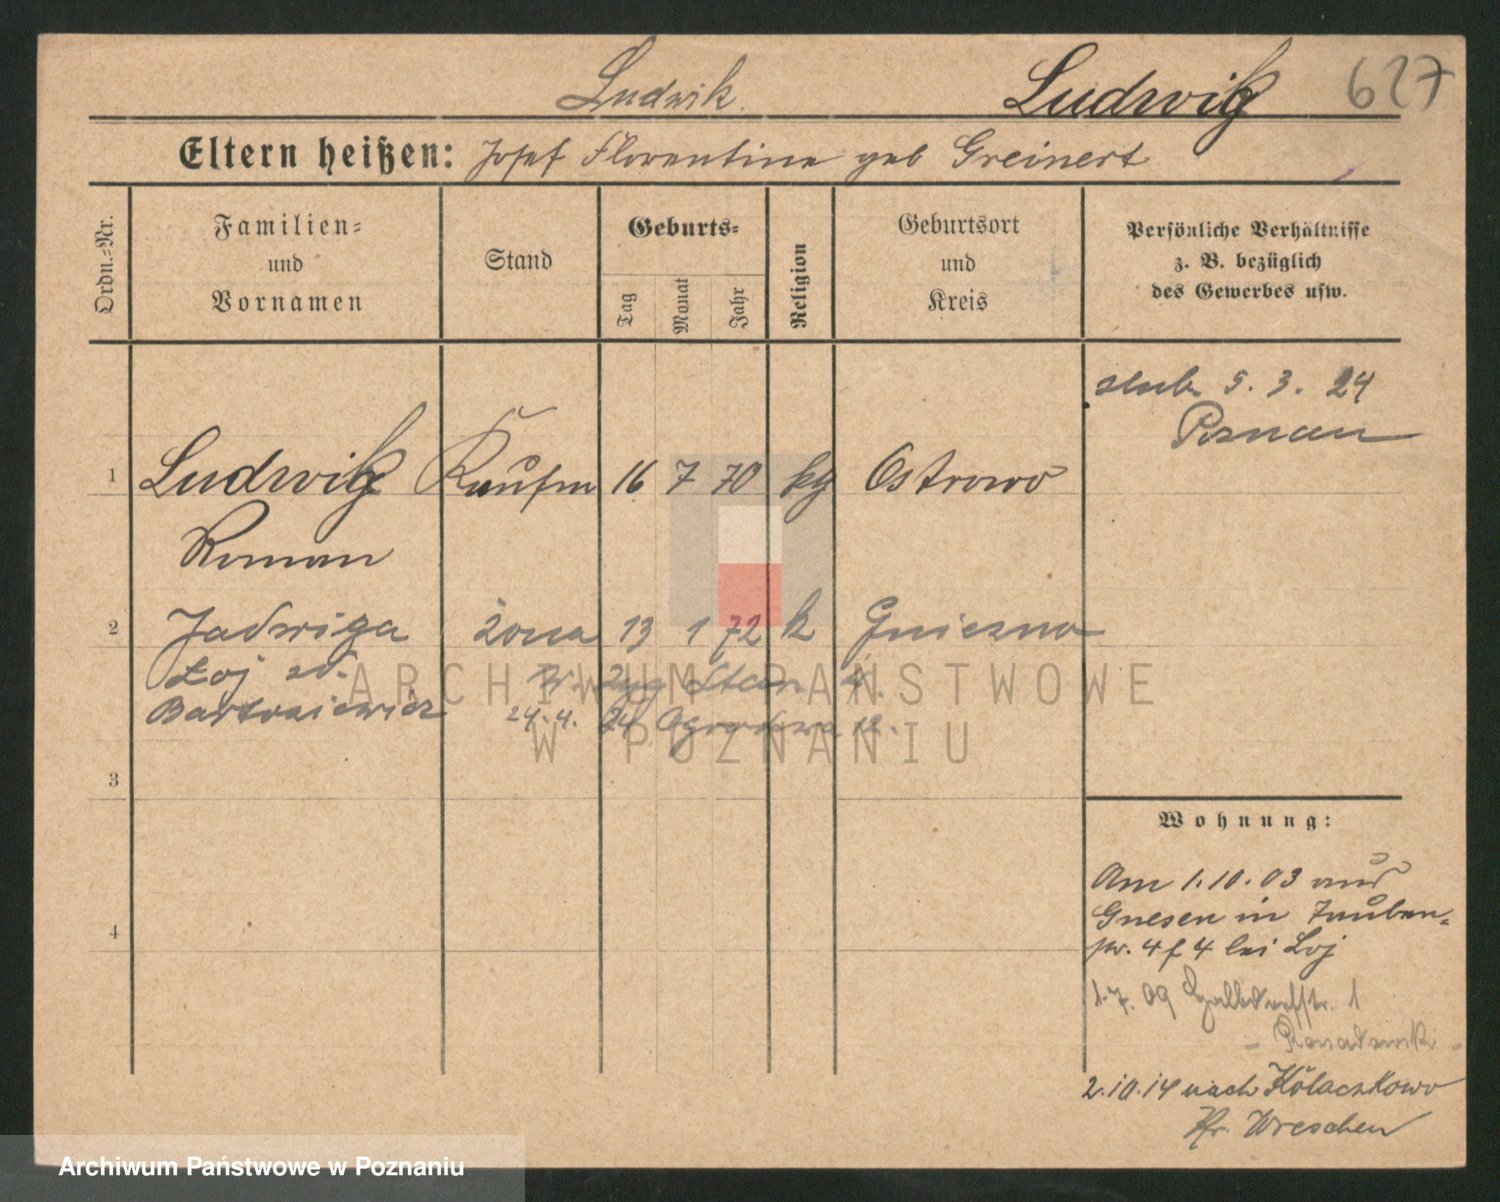 Ludwik. Ludwig 627
Eltern heißen: Josef Florentine geb Greinert
Ordn.-Nr.
Familien-
und
Vornamen
Stand
Geburts-
Tag
Monat
Jahr
Religion
Geburtsort
und
Kreis
Persönliche Verhältnisse
z. B. bezüglich
des Gewerbes usw.
ślub 5. 3. 24
Poznan
1 Ludwig Kaufm 16 7 70 kg Ostrowo
Roman
2 Jadwiga żona 13 1 72 k Gniezno
Łoj zd.
Bartosiewicz
24. 4. 24 Ogrodowa 12.
3
4
Wohnung:
Am 1.10.03 aus
Gnesen in Tauben-
str. 4 f 4 bei Loj
1.7.09 Halbdorfstr. 1
2.10.14 nach Kólaczkowo
Kr. Wreschen
ARCHIWUM PAŃSTWOWE
W POZNANIU
Archiwum Państwowe w Poznaniu